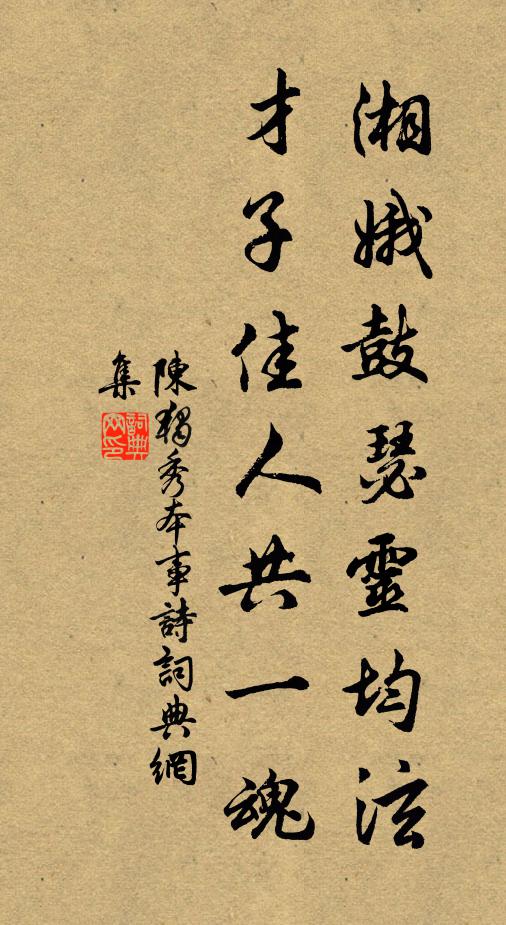 湘娥鼓瑟靈均泫
才子佳人共一魂
陳獨秀本事詩詞典網
集
詞典網印